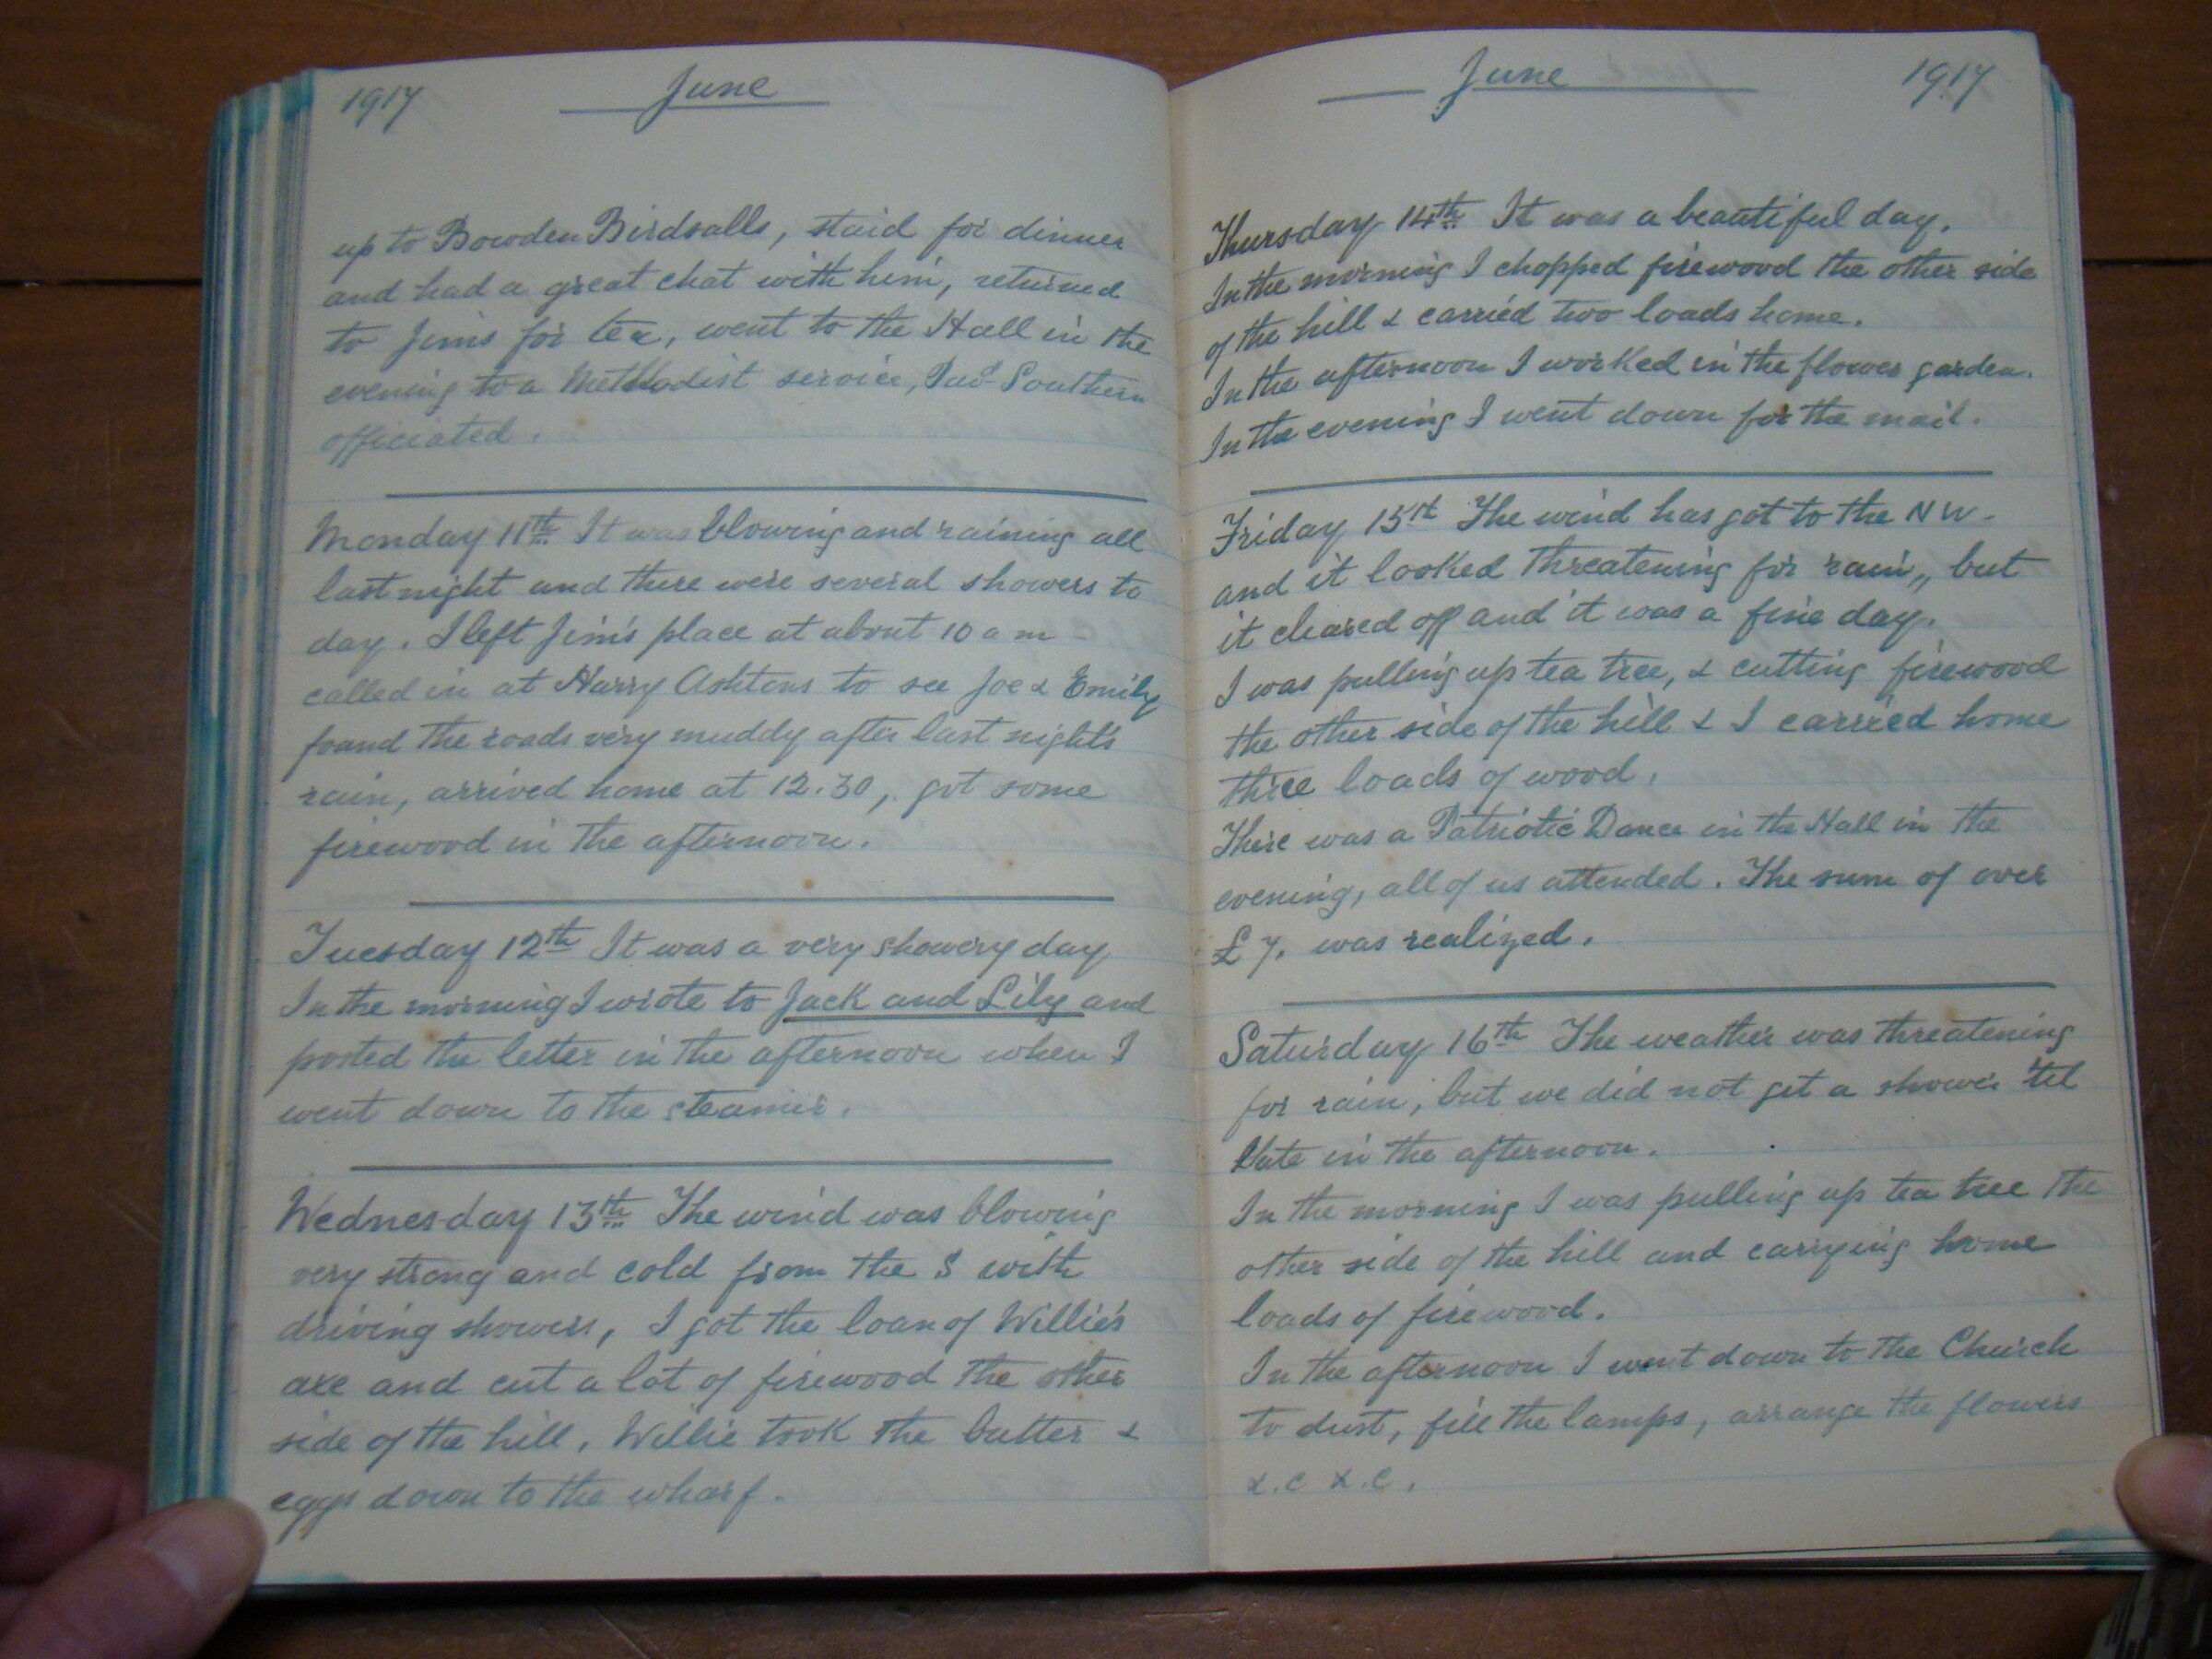 1917 June
up to Bowden Birdsalls, staid for dinner
and had a great chat with him, returned
to Jims for tea, went to the Hall in the
evening to a Methodist service, Southern
officiated.
Monday 11th It was blowing and raining all
last night and there were several showers to
day. I left Jim's place at about 10 a m -
called in at Harry Ashtons to see Joe & Emily
found the roads very muddy after last night's
rain, arrived home at 12.30, got some
firewood in the afternoon.
Tuesday 12th It was a very showery day
In the morning I wrote to Jack and Lily and
posted the letter in the afternoon when I
went down to the steamer.
Wednesday 13th The wind was blowing
very strong and cold from the S with
driving showers, I got the loan of Willie's
axe and cut a lot of firewood the other
side of the hill. Willie took the butter &
eggs down to the wharf.
June 1917
Thursday 14th It was a beautiful day.
In the morning I chopped firewood the other side
of the hill & carried two loads home.
In the afternoon I worked in the flower garden.
In the evening I went down for the mail.
Friday 15th The wind has got to the NW -
and it looked threatening for rain,, but
it cleared off and it was a fine day.
I was pulling up tea tree, & cutting firewood
the other side of the hill & I carried home
three loads of wood.
There was a Patriotic Dance in the Hall in the
evening, all of us attended. The sum of over
£7. was realized.
Saturday 16th The weather was threatening
for rain, but we did not get a shower 'til
late in the afternoon.
In the morning I was pulling up tea tree the
other side of the hill and carrying home
loads of firewood.
In the afternoon I went down to the Church
to dust, fill the lamps, arrange the flowers
&.c &.c.